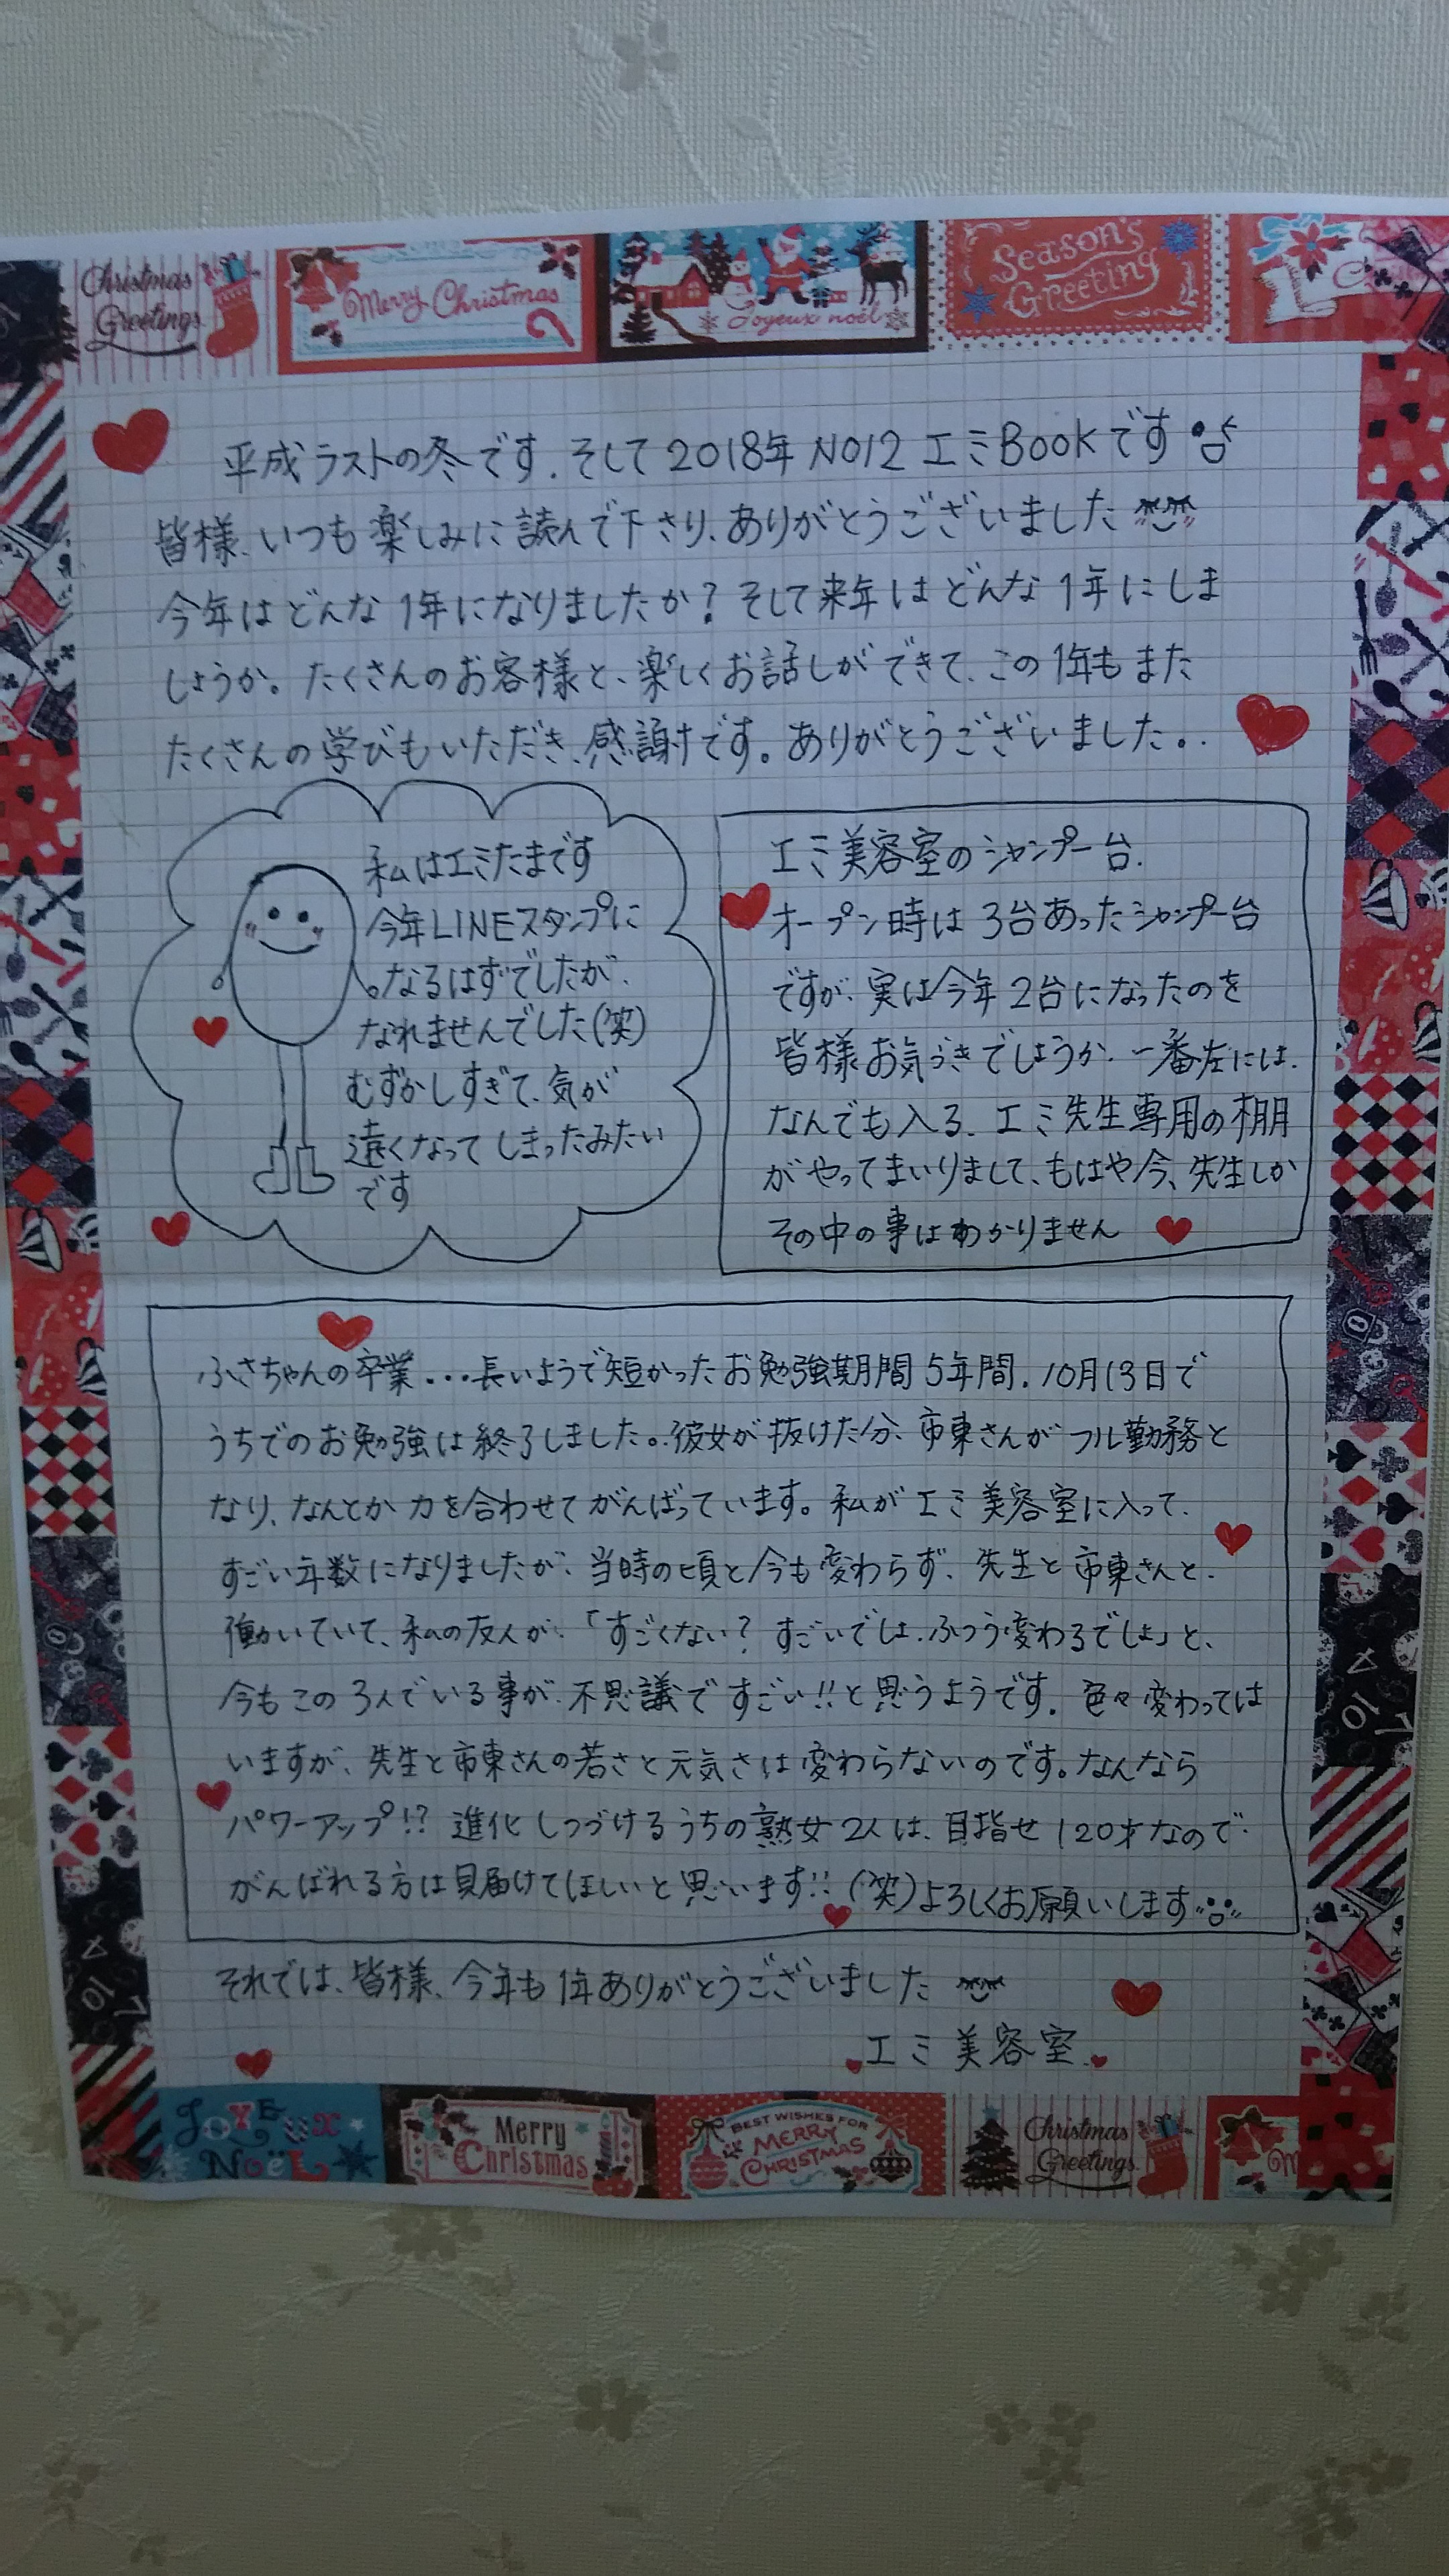 Christmas Greetings
Merry Christmas
Joyeux noël
Season's Greeting
平成ラストの冬です.そして2018年NO12 エミBOOKです
皆様、いつも楽しみに読んで下さり、ありがとうございました
今年はどんな1年になりましたか？そして来年はどんな1年にしま
しょうか。たくさんのお客様と、楽しくお話しができて、この1年もまた
たくさんの学びもいただき、感謝です。ありがとうございました。.
私はエミたまです
今年LINEスタンプに
なるはずでしたが、
なれませんでした(笑)
むずかしすぎて、気が
遠くなってしまったみたい
です
エミ美容室のシャンプー台.
オープン時は3台あったシャンプー台
ですが、実は今年2台になったのを
皆様お気づきでしょうか.一番左には、
なんでも入る、エミ先生専用の棚
がやってまいりまして、もはや今、先生しか
その中の事はわかりません
ふさちゃんの卒業...長いようで短かったお勉強期間5年間.10月13日で
うちでのお勉強は終了しました。.彼女が抜けた分、市東さんがフル勤務と
なり、なんとか力を合わせてがんばっています。私がエミ美容室に入って、
すごい年数になりましたが、当時の頃と今も変わらず、先生と市東さんと、
働いていて、私の友人が、「すごくない？すごいでしょ.ふつう変わるでしょ」と、
今もこの3人でいる事が、不思議ですごい!!と思うようです.色々変わっては
いますが、先生と市東さんの若さと元気さは変わらないのです。なんなら
パワーアップ!?進化しつづけるうちの熟女2人は、目指せ120才なので、
がんばれる方は見届けてほしいと思います!!(笑)よろしくお願いします
それでは、皆様、今年も1年ありがとうございました
エミ美容室.
JOYEUX NOËL
Merry Christmas
BEST WISHES FOR MERRY CHRISTMAS
Christmas Greetings